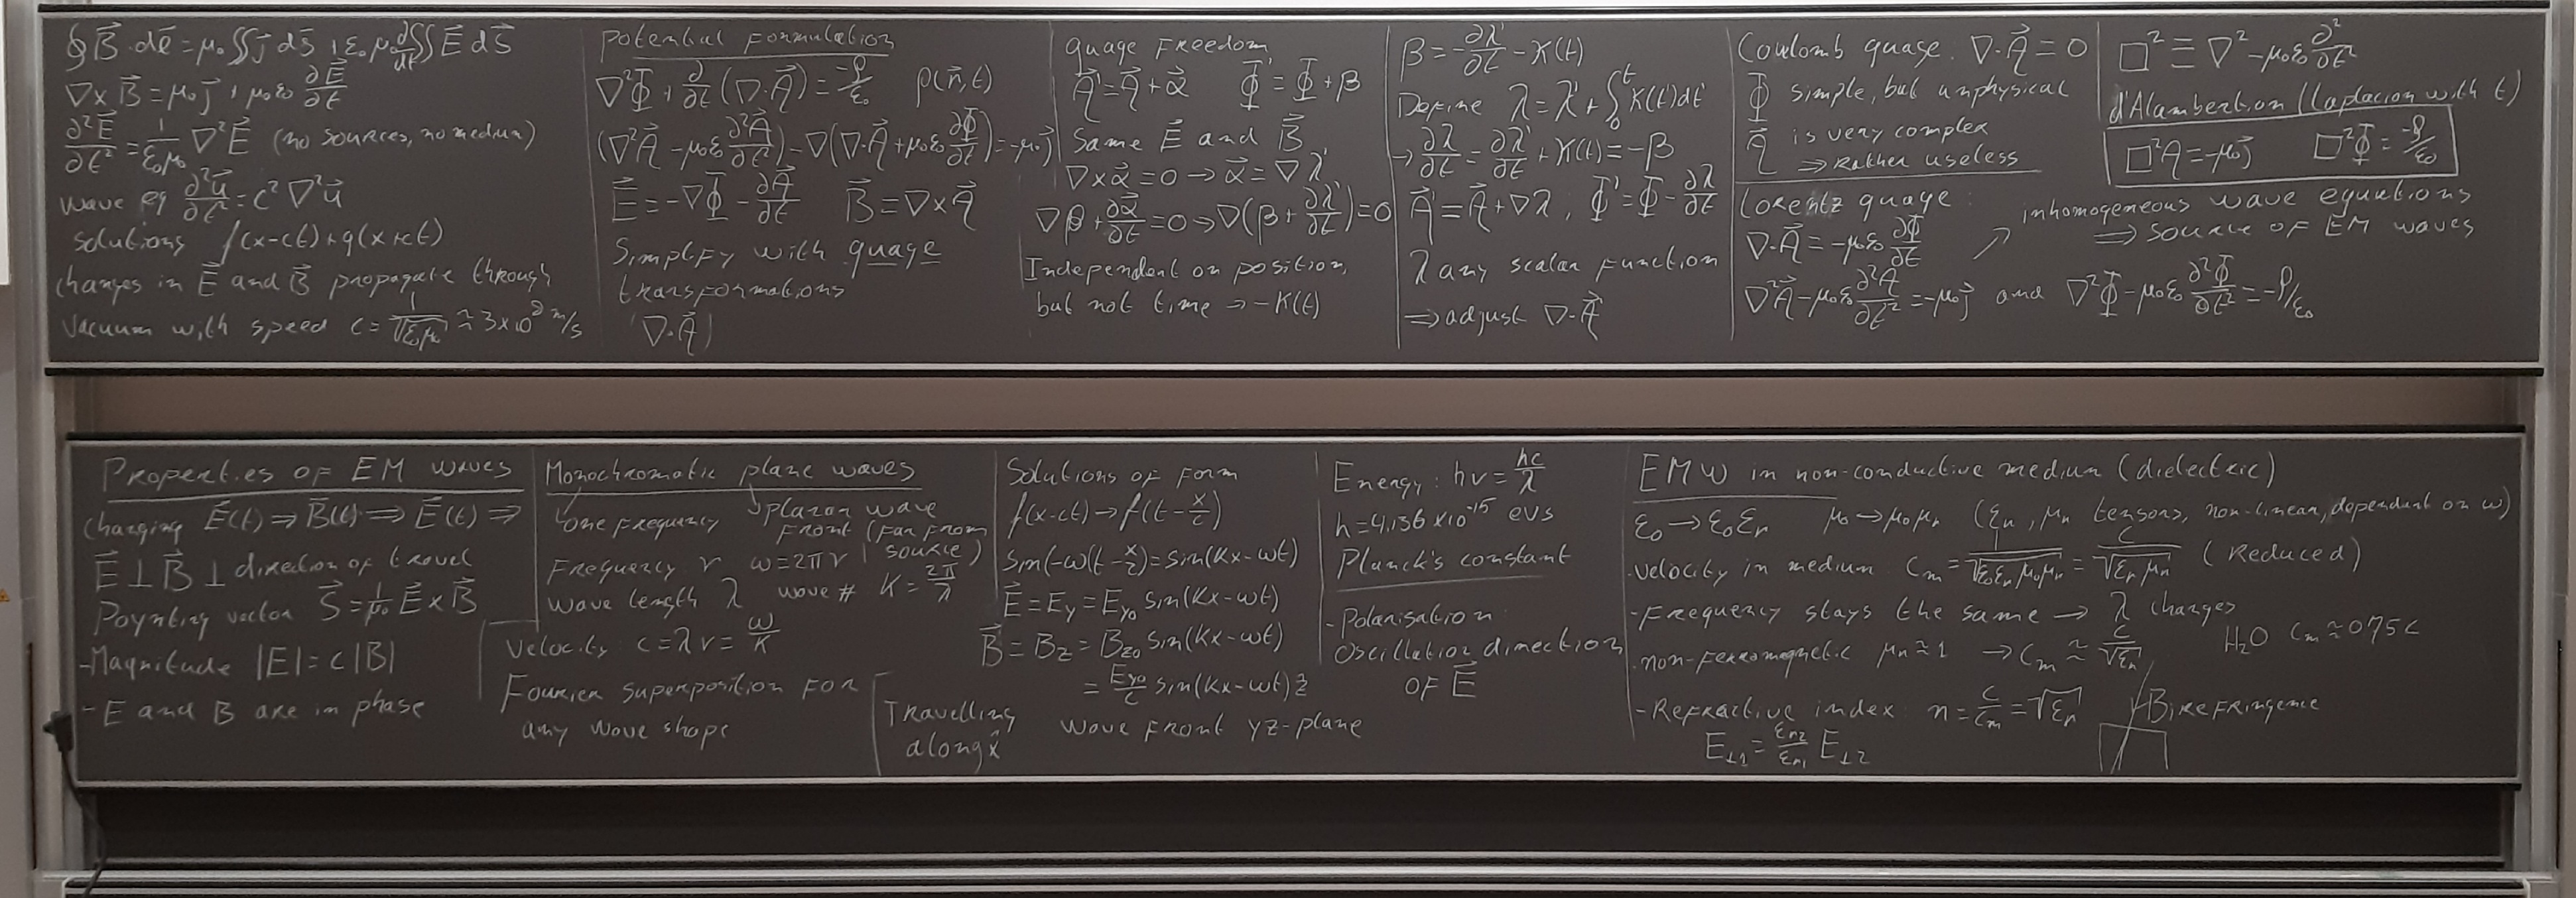 ∮B⃗·dℓ⃗ = μ₀∬j⃗ ds⃗ + ε₀μ₀ ∂/∂t ∬E⃗ dS⃗
∇×B⃗ = μ₀j⃗ + μ₀ε₀ ∂E⃗/∂t
∂²E⃗/∂t² = 1/(ε₀μ₀) ∇²E⃗ (no sources, no medium)
wave eq ∂²u⃗/∂t² = c²∇²u⃗
solutions f(x-ct)+g(x+ct)
changes in E⃗ and B⃗ propagate through
vacuum with speed c = 1/√(ε₀μ₀) ≈ 3×10⁸ m/s
Potential Formulation
∇²Φ + ∂/∂t(∇·A⃗) = -ρ/ε₀ ρ(r⃗,t)
(∇²A⃗ - μ₀ε₀ ∂²A⃗/∂t²) - ∇(∇·A⃗ + μ₀ε₀ ∂Φ/∂t) = -μ₀j⃗
E⃗ = -∇Φ - ∂A⃗/∂t B⃗ = ∇×A⃗
Simplify with guage
transformations
(∇·A⃗)
guage Freedom
A⃗' = A⃗ + α⃗ Φ' = Φ + β
Same E⃗ and B⃗
∇×α⃗ = 0 → α⃗ = ∇λ'
∇β + ∂α⃗/∂t = 0 → ∇(β + ∂λ'/∂t) = 0
Independent on position,
but not time → -K(t)
β = -∂λ'/∂t - K(t)
Define λ = λ' + ∫₀ᵗ K(t')dt'
→ ∂λ/∂t = ∂λ'/∂t + K(t) = -β
A⃗' = A⃗ + ∇λ, Φ' = Φ - ∂λ/∂t
λ any scalar function
⇒ adjust ∇·A⃗
Coulomb guage. ∇·A⃗ = 0
Φ simple, but unphysical
A⃗ is very complex
⇒ Rather useless
Lorentz guage:
∇·A⃗ = -μ₀ε₀ ∂Φ/∂t
∇²A⃗ - μ₀ε₀ ∂²A⃗/∂t² = -μ₀j⃗ and ∇²Φ - μ₀ε₀ ∂²Φ/∂t² = -ρ/ε₀
□² ≡ ∇² - μ₀ε₀ ∂²/∂t²
d'Alambertion (laplacion with t)
□²A = -μ₀j⃗ □²Φ = -ρ/ε₀
inhomogeneous wave equations
⇒ source of EM waves
Properties of EM waves
changing E⃗(t) ⇒ B⃗(t) ⇒ E⃗(t) ⇒
E⃗ ⊥ B⃗ ⊥ direction of travel
Poynting vector S⃗ = 1/μ₀ E⃗×B⃗
-Magnitude |E| = c|B|
- E and B are in phase
Monochromatic plane waves
one frequency
planar wave
front (far from
source)
Frequency ν ω = 2πν
wave length λ wave # K = 2π/λ
Velocity: c = λν = ω/K
Fourier superposition for
any wave shape
Solutions of form
f(x-ct) → f(t - x/c)
sin(-ω(t - x/c) = sin(Kx-ωt)
E⃗ = Ey = Ey₀ sin(Kx-ωt)
B⃗ = Bz = Bz₀ sin(Kx-ωt)
= Ey₀/c sin(Kx-ωt) ẑ
Travelling
along x̂
wave front yz-plane
Energy: hν = hc/λ
h = 4,136 × 10⁻¹⁵ eVs
Planck's constant
-Polarisation
Oscillation direction
of E⃗
EMW in non-conductive medium (dielectric)
ε₀ → ε₀εr μ₀ → μ₀μr (εr, μr tensors, non-linear, dependent on ω)
-velocity in medium: cm = 1/√(ε₀εrμ₀μr) = c/√(εrμr) (reduced)
-Frequency stays the same → λ changes
-non-Ferromagnetic μr ≈ 1 → cm ≈ c/√εr
H₂O cm ≈ 0.75c
-Refractive index: n = c/cm = √εr
Birefringence
E⊥1 = εr2/εr1 E⊥2